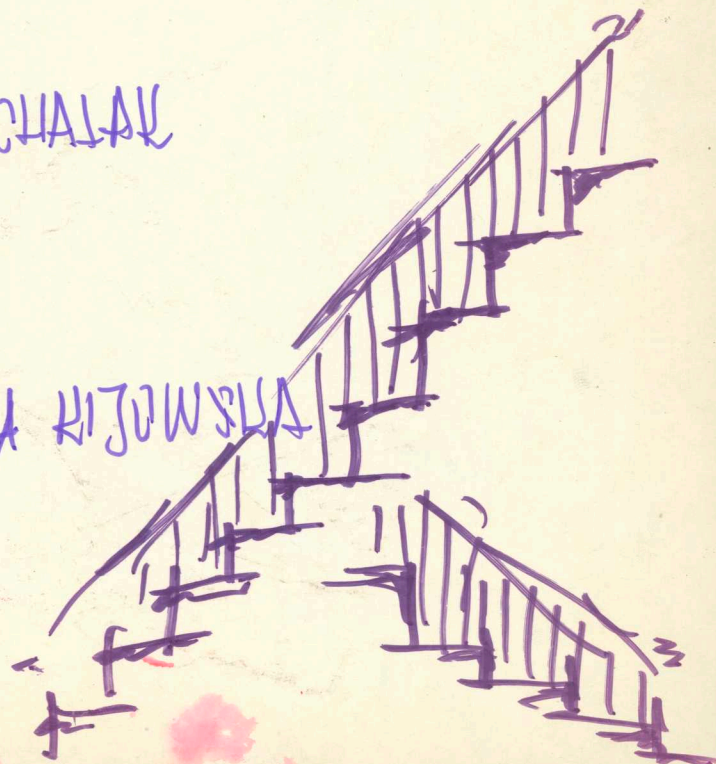 CHALAK
A KIJOWSKA